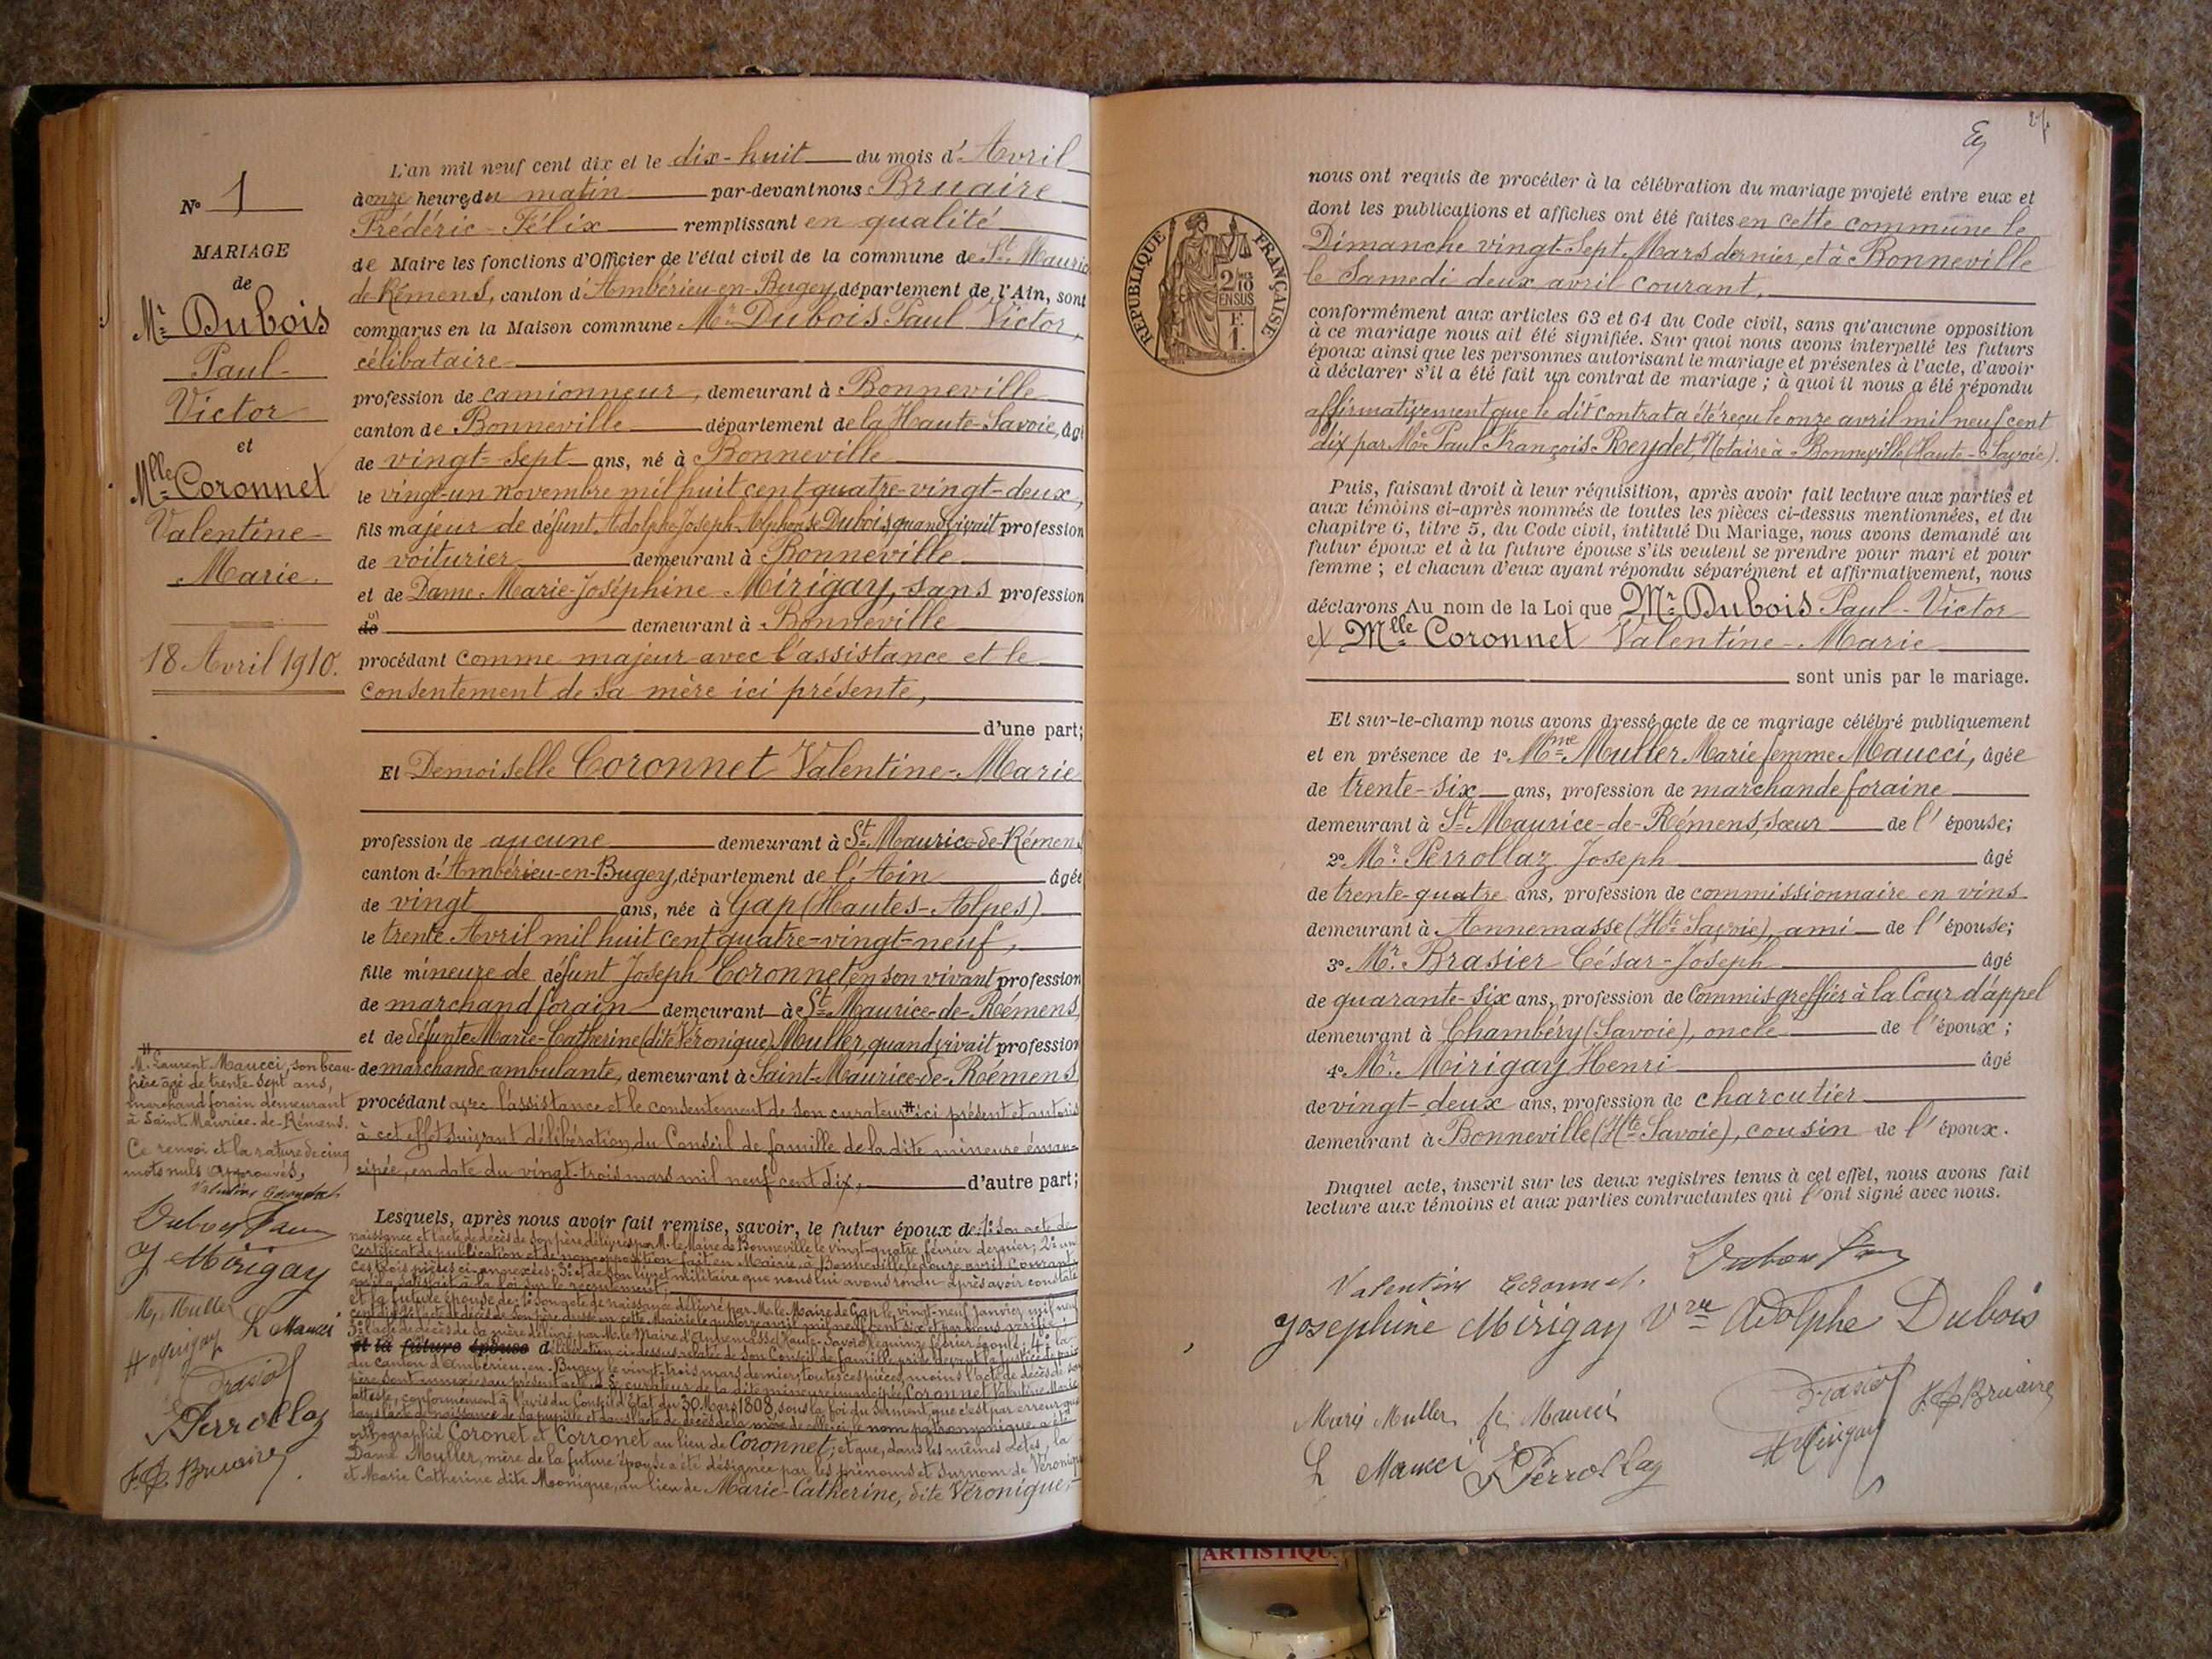 N° 1
MARIAGE
de
Mr. Dubois
Paul-
Victor
et
Mlle Coronnet
Valentine-
Marie.
18 Avril 1910.
L'an mil neuf cent dix et le dix-huit du mois d'Avril
à onze heures du matin par-devant nous Bruaire
Frédéric-Félix remplissant en qualité
de Maire les fonctions d'Officier de l'état civil de la commune de St. Maurice
de-Rémens, canton d'Ambérieu-en-Bugey, département de l'Ain, sont
comparus en la Maison commune Mr. Dubois Paul Victor,
célibataire
profession de camionneur, demeurant à Bonneville
canton de Bonneville département de la Haute-Savoie, âgé
de vingt-sept ans, né à Bonneville
le vingt-un novembre mil huit cent quatre-vingt-deux,
fils majeur de défunt Adolphe-Joseph-Alphonse Dubois, quand vivait profession
de voiturier demeurant à Bonneville
et de Dame Marie-Joséphine Mirigay, sans profession
de demeurant à Bonneville
procédant comme majeur avec l'assistance et le
consentement de sa mère ici présente,
d'une part;
Et Demoiselle Coronnet Valentine-Marie
profession de aucune demeurant à St. Maurice-de-Rémens
canton d'Ambérieu-en-Bugey, département de l'Ain âgée
de vingt ans, née à Gap (Hautes-Alpes)
le trente Avril mil huit cent quatre-vingt-neuf,
fille mineure de défunt Joseph Coronnet, en son vivant profession
de marchand forain demeurant à St. Maurice-de-Rémens,
et de défunte Marie-Catherine (dite Véronique) Muller, quand vivait profession
de marchande ambulante, demeurant à Saint-Maurice-de-Rémens
procédant avec l'assistance et le consentement de son curateur # ici présent et autorisé
à cet effet suivant délibération du Conseil de famille de la dite mineure éman-
cipée, en date du vingt-trois mars mil neuf cent dix, d'autre part;
# M. Laurent Maucci, son beau-
frère âgé de trente-sept ans,
marchand forain demeurant
à Saint-Maurice-de-Rémens.
Ce renvoi et la rature de cinq
mots nuls approuvés,
Valentine Coronnet
Dubois Paul
J Mirigay
M. Muller
L Maucci
H Mirigay
Brasier
J Perrollaz
F. F. Bruaire
Lesquels, après nous avoir fait remise, savoir, le futur époux de 1° Son acte de
naissance et l'acte de décès de son père délivrés par M. le Maire de Bonneville le vingt-quatre février dernier; 2° un
certificat de publication et de non opposition fait en Mairie, à Bonneville le douze avril courant,
ces trois pièces ci-annexées; 3° et de son livret militaire que nous lui avons rendu après avoir constaté
qu'il a satisfait à la loi sur le recrutement;
et la future épouse de: 1° Son acte de naissance délivré par M. le Maire de Gap le vingt-neuf Janvier mil neuf
cent dix; 2° l'acte de décès de son père dressé en cette Mairie le quatorze avril mil neuf cent six et par nous vérifié;
3° l'acte de décès de sa mère délivré par M. le Maire d'Annemasse (Haute-Savoie) le quinze février écoulé; 4° la
et la future épouse délibération ci-dessus relatée de son Conseil de famille prise devant la Justice de paix
du canton d'Ambérieu-en-Bugey le vingt-trois mars dernier; toutes ces pièces, moins l'acte de décès de son
père sont annexées au présent acte. Le curateur de la dite mineure émancipée, Coronnet Valentine Marie
atteste, conformément à l'avis du Conseil d'État du 30 Mars 1808, sous la foi du serment, que c'est par erreur que
dans l'acte de naissance de sa pupille et dans l'acte de décès de la mère de celle-ci, le nom patronymique a été
orthographié Coronet et Corronet au lieu de Coronnet; et que, dans les mêmes actes, la
Dame Muller, mère de la future épouse a été désignée par les prénoms et surnom de Véronique
et Marie Catherine dite Monique, au lieu de Marie-Catherine, dite Véronique,-
RÉPUBLIQUE FRANÇAISE
2/10 EN SUS
F.
1.
nous ont requis de procéder à la célébration du mariage projeté entre eux et
dont les publications et affiches ont été faites en cette commune le
Dimanche vingt-sept Mars dernier, et à Bonneville
le Samedi deux avril courant,
conformément aux articles 63 et 64 du Code civil, sans qu'aucune opposition
à ce mariage nous ait été signifiée. Sur quoi nous avons interpellé les futurs
époux ainsi que les personnes autorisant le mariage et présentes à l'acte, d'avoir
à déclarer s'il a été fait un contrat de mariage; à quoi il nous a été répondu
affirmativement que le dit contrat a été reçu le onze avril mil neuf cent
dix par Me. Paul François Reydet, Notaire à Bonneville (Haute-Savoie).
Puis, faisant droit à leur réquisition, après avoir fait lecture aux parties et
aux témoins ci-après nommés de toutes les pièces ci-dessus mentionnées, et du
chapitre 6, titre 5, du Code civil, intitulé Du Mariage, nous avons demandé au
futur époux et à la future épouse s'ils veulent se prendre pour mari et pour
femme; et chacun d'eux ayant répondu séparément et affirmativement, nous
déclarons Au nom de la Loi que Mr. Dubois Paul-Victor
et Mlle Coronnet Valentine-Marie
sont unis par le mariage.
Et sur-le-champ nous avons dressé acte de ce mariage célébré publiquement
et en présence de 1° Mme Muller Marie femme Maucci, âgée
de trente-six ans, profession de marchande foraine
demeurant à St. Maurice-de-Rémens, sœur de l'épouse;
2° Mr. Perrollaz Joseph âgé
de trente-quatre ans, profession de commissionnaire en vins
demeurant à Annemasse (Hte Savoie), ami de l'épouse;
3° Mr. Brasier César-Joseph âgé
de quarante-six ans, profession de Commis-greffier à la Cour d'appel
demeurant à Chambéry (Savoie), oncle de l'époux;
4° Mr. Mirigay Henri âgé
de vingt-deux ans, profession de charcutier
demeurant à Bonneville (Hte Savoie), cousin de l'époux.
Duquel acte, inscrit sur les deux registres tenus à cet effet, nous avons fait
lecture aux témoins et aux parties contractantes qui l'ont signé avec nous.
Valentine Coronnet. Dubois Paul
Josephine Mirigay Vve Adolphe Dubois
Marie Muller fe Maucci
Brasier
F. F. Bruaire
H Mirigay
L Maucci
J Perrollaz
ARTISTIQU